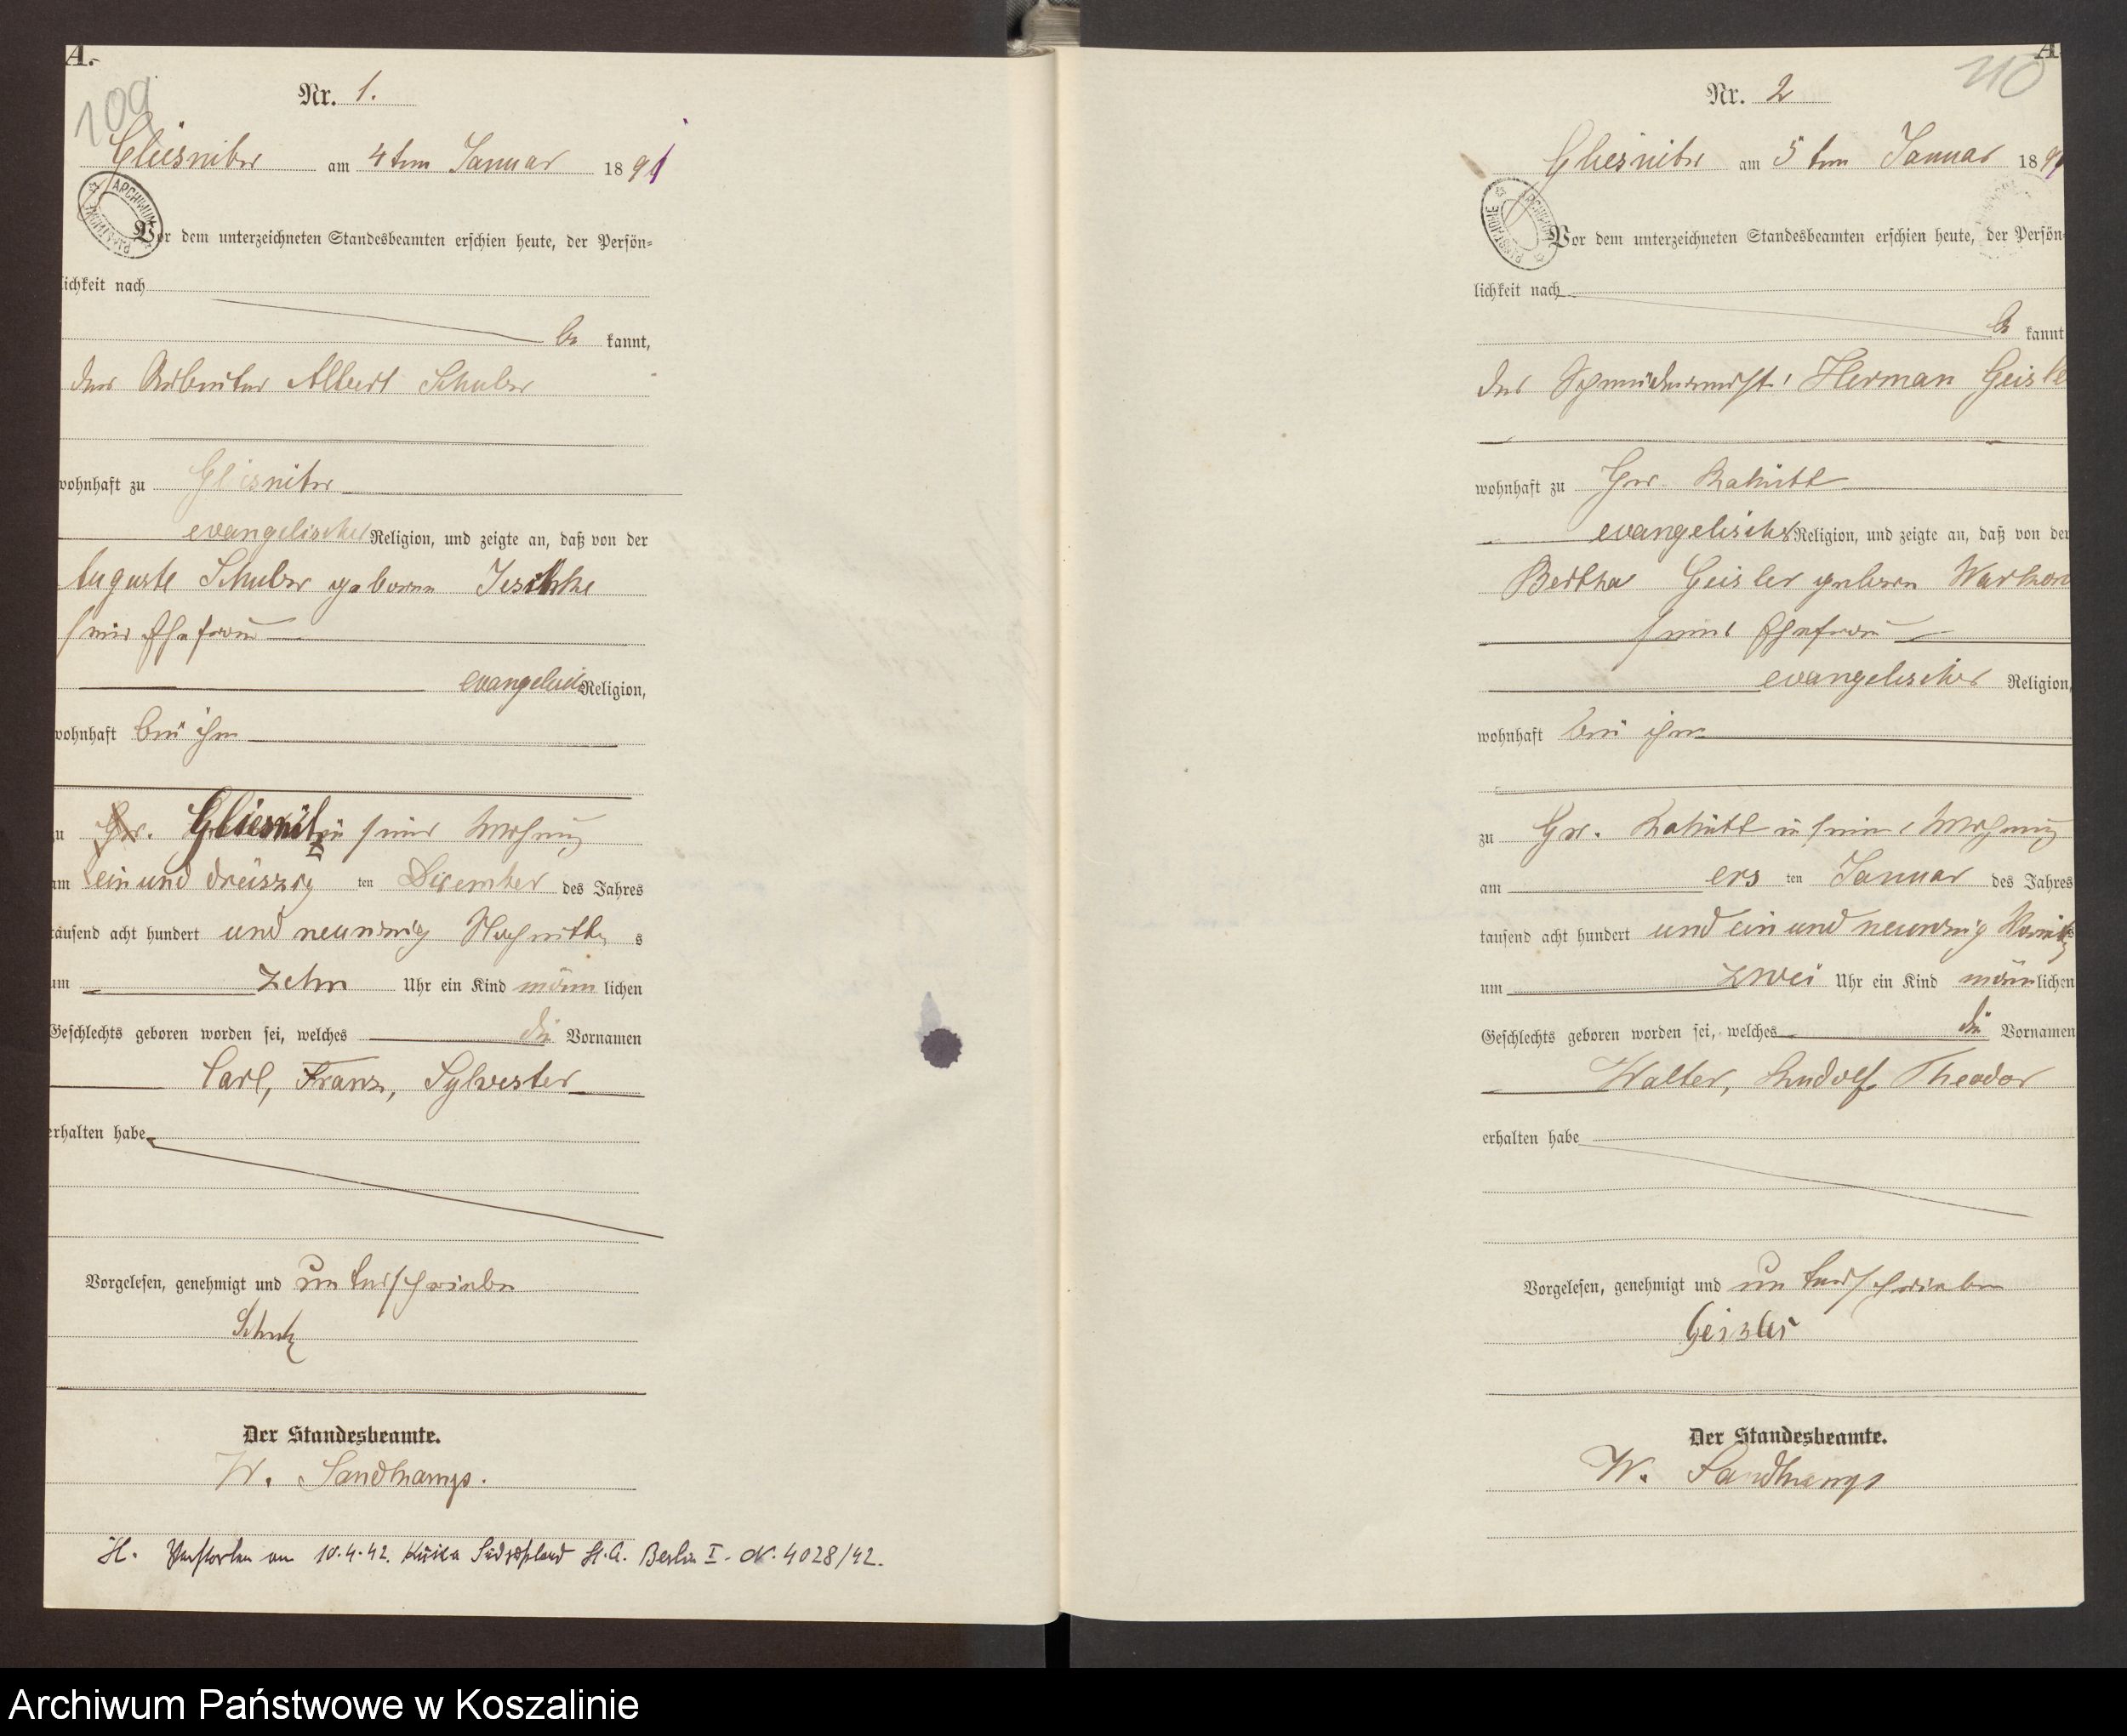 A.
109
Nr. 1.
am 4ten Januar 1891
ARCHIWUM PAŃSTWOWE
Vor dem unterzeichneten Standesbeamten erschien heute, der Persön-
lichkeit nach
be kannt,
der Arbeiter Albert
wohnhaft zu
evangelischer Religion, und zeigte an, daß von der
Auguste geborene
seiner Ehefrau
Religion,
wohnhaft bei ihm
zu seiner Wohnung
am ein und dreiszig ten Dezember des Jahres
tausend acht hundert und neunzig Nachmittags
um zehn Uhr ein Kind männ lichen
Geschlechts geboren worden sei, welches die Vornamen
Carl, Franz, Sylvester
erhalten habe
Vorgelesen, genehmigt und unterschrieben
Der Standesbeamte.
W.
Verstorben am 10.4.42. Berlin I. Nr. 4028/42.
A
110
Nr. 2
am 5ten Januar 1891
ARCHIWUM PAŃSTWOWE
Vor dem unterzeichneten Standesbeamten erschien heute, der Persön-
lichkeit nach
be kannt
der Herman Geisle
wohnhaft zu Gr.
evangelischer Religion, und zeigte an, daß von der
Bertha Geisler geboren
seiner Ehefrau
evangelischer Religion,
wohnhaft bei ihm
zu Gr. in seiner Wohnung
am ers ten Januar des Jahres
tausend acht hundert und ein und neunzig
um zwei Uhr ein Kind männ lichen
Geschlechts geboren worden sei, welches die Vornamen
Walter, Rudolf Theodor
erhalten habe
Vorgelesen, genehmigt und unterschrieben
Geisler
Der Standesbeamte.
W.
Archiwum Państwowe w Koszalinie